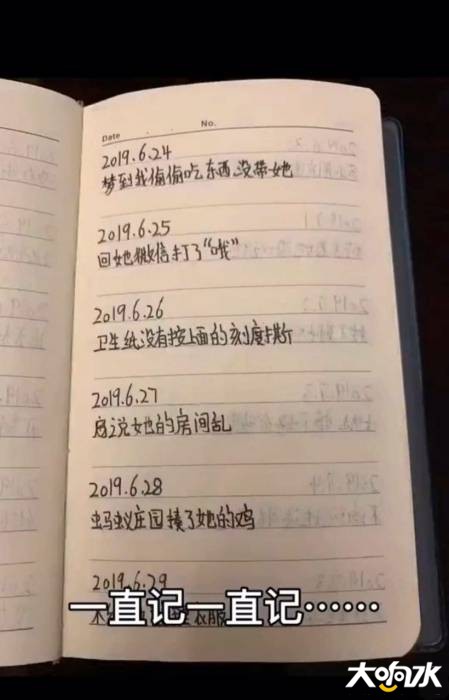 Date . . No.
2019.6.24
梦到我偷偷吃东西,没带她
2019.6.25
回她微信打了“哦”
2019.6.26
卫生纸没有按上面的刻度撕
2019.6.27
说她的房间乱
2019.6.28
蚂蚁庄园揍了她的鸡
2019.6.29
衣服
一直记一直记……
大响水